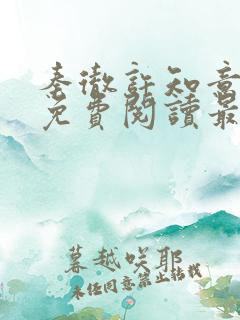 秦徹許知意
免費閱讀最
暮越咲耶
未经同意禁止转载